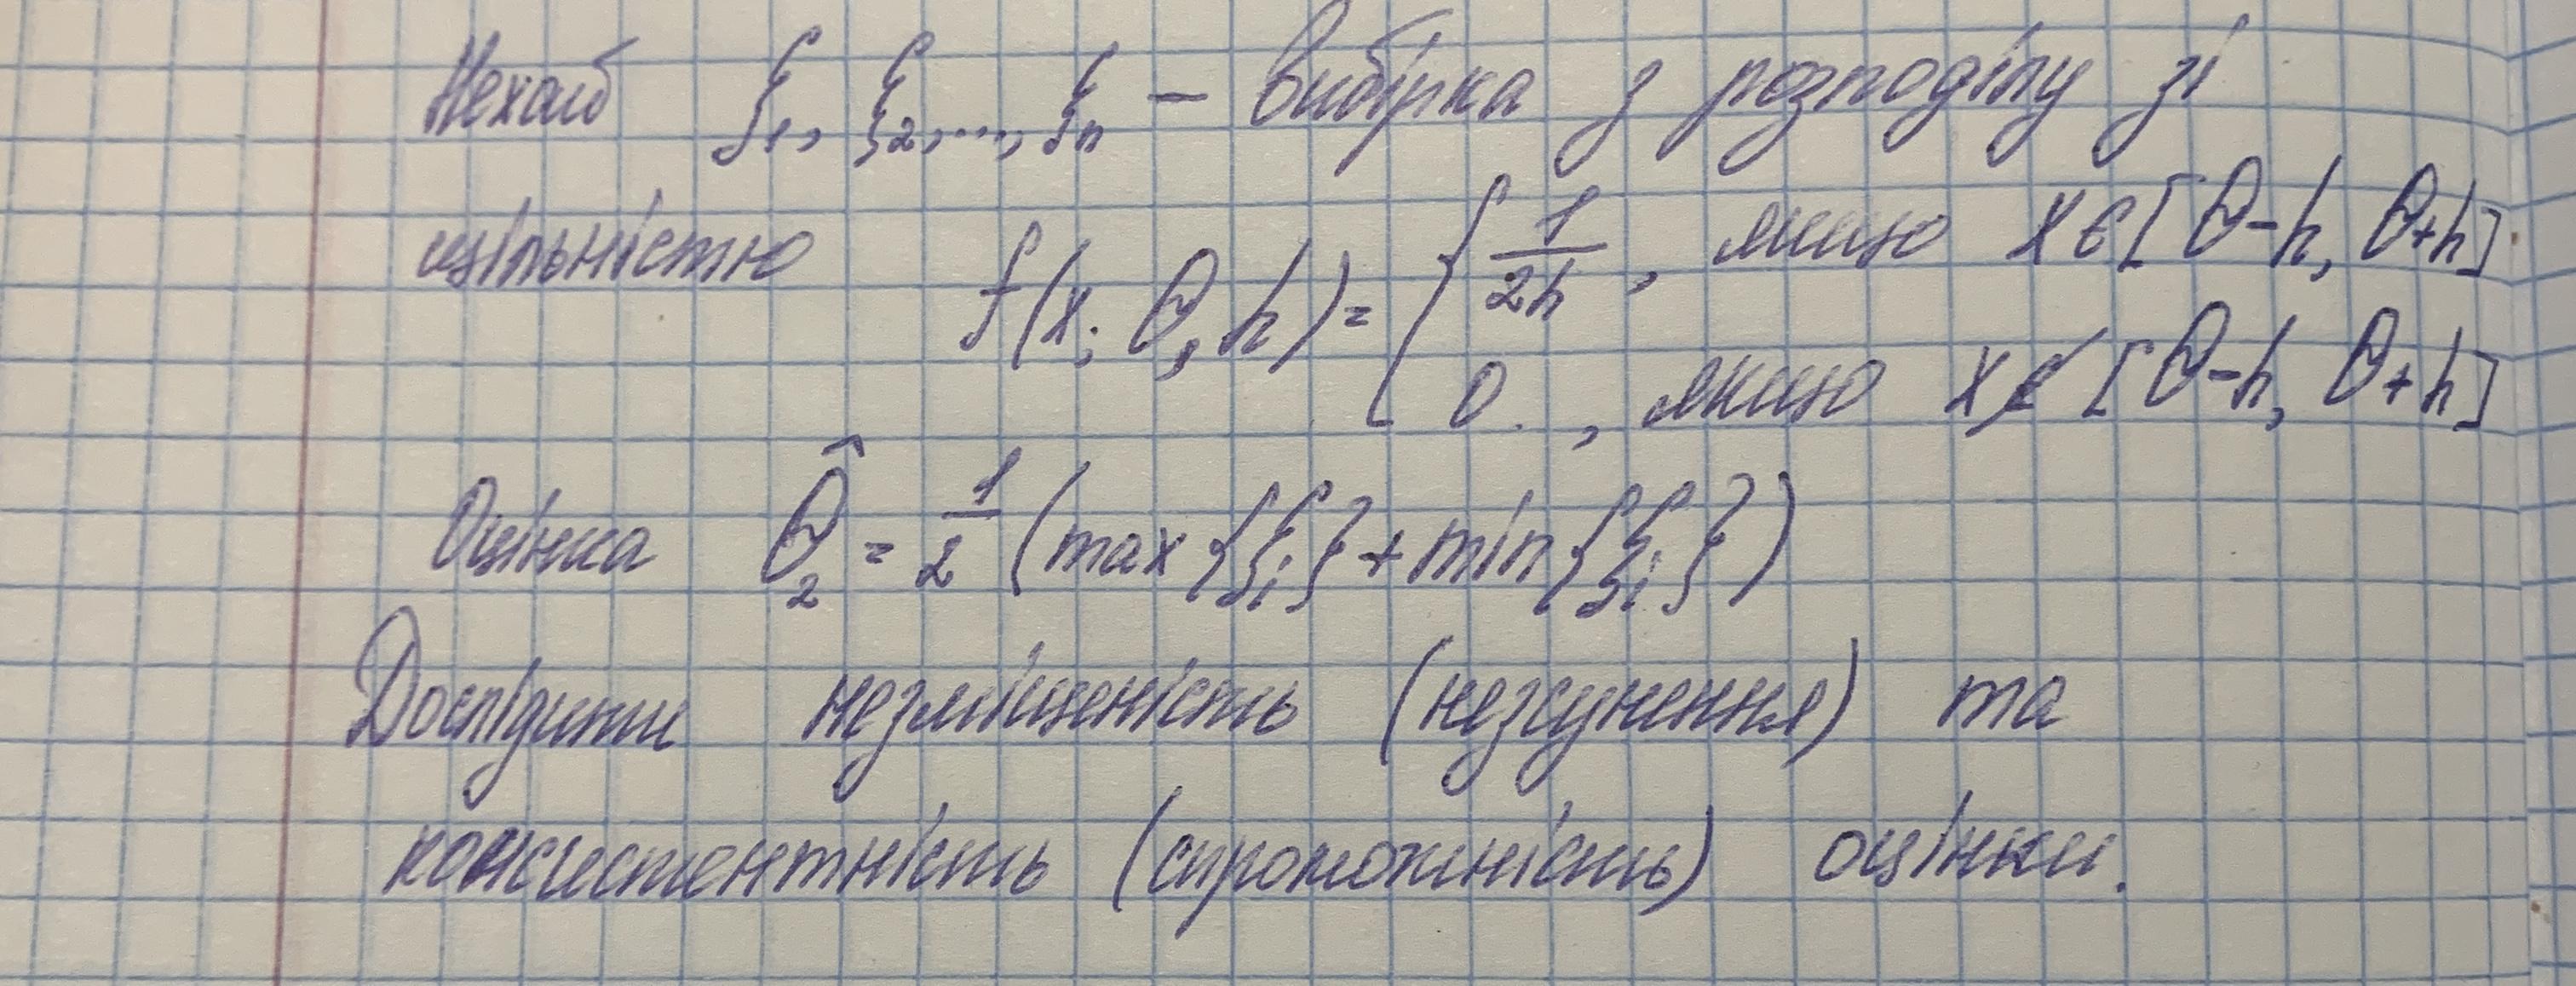 Нехай ξ₁, ξ₂, ..., ξₙ – вибірка з розподілу зі
щільністю f(x; θ, h) = { 1/2h, якщо x ∈ [θ-h, θ+h]
0, якщо x ∉ [θ-h, θ+h]
Оцінка θ̂₂ = 1/2 (max{ξᵢ} + min{ξᵢ})
Дослідити незміщеність (незсунення) та
консистентність (спроможність) оцінки.